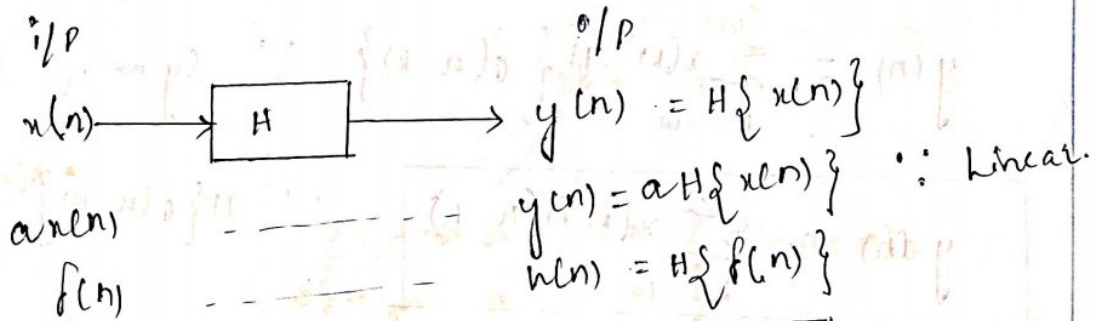 i/p o/p
x(n) H y(n) = H{x(n)}
ax(n) y(n) = aH{x(n)} ∵ Linear.
f(n) h(n) = H{f(n)}